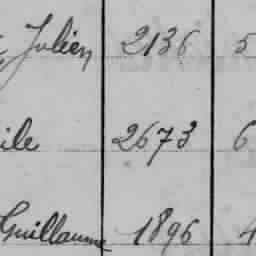 Julien 2136 5
ile 2673 6
Guillaume 1896 4